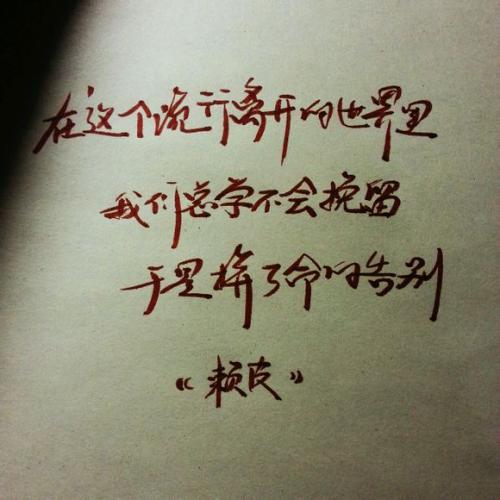 在这个流行离开的世界里
我们总学不会挽留
于是拚了命的告别
《赖皮》